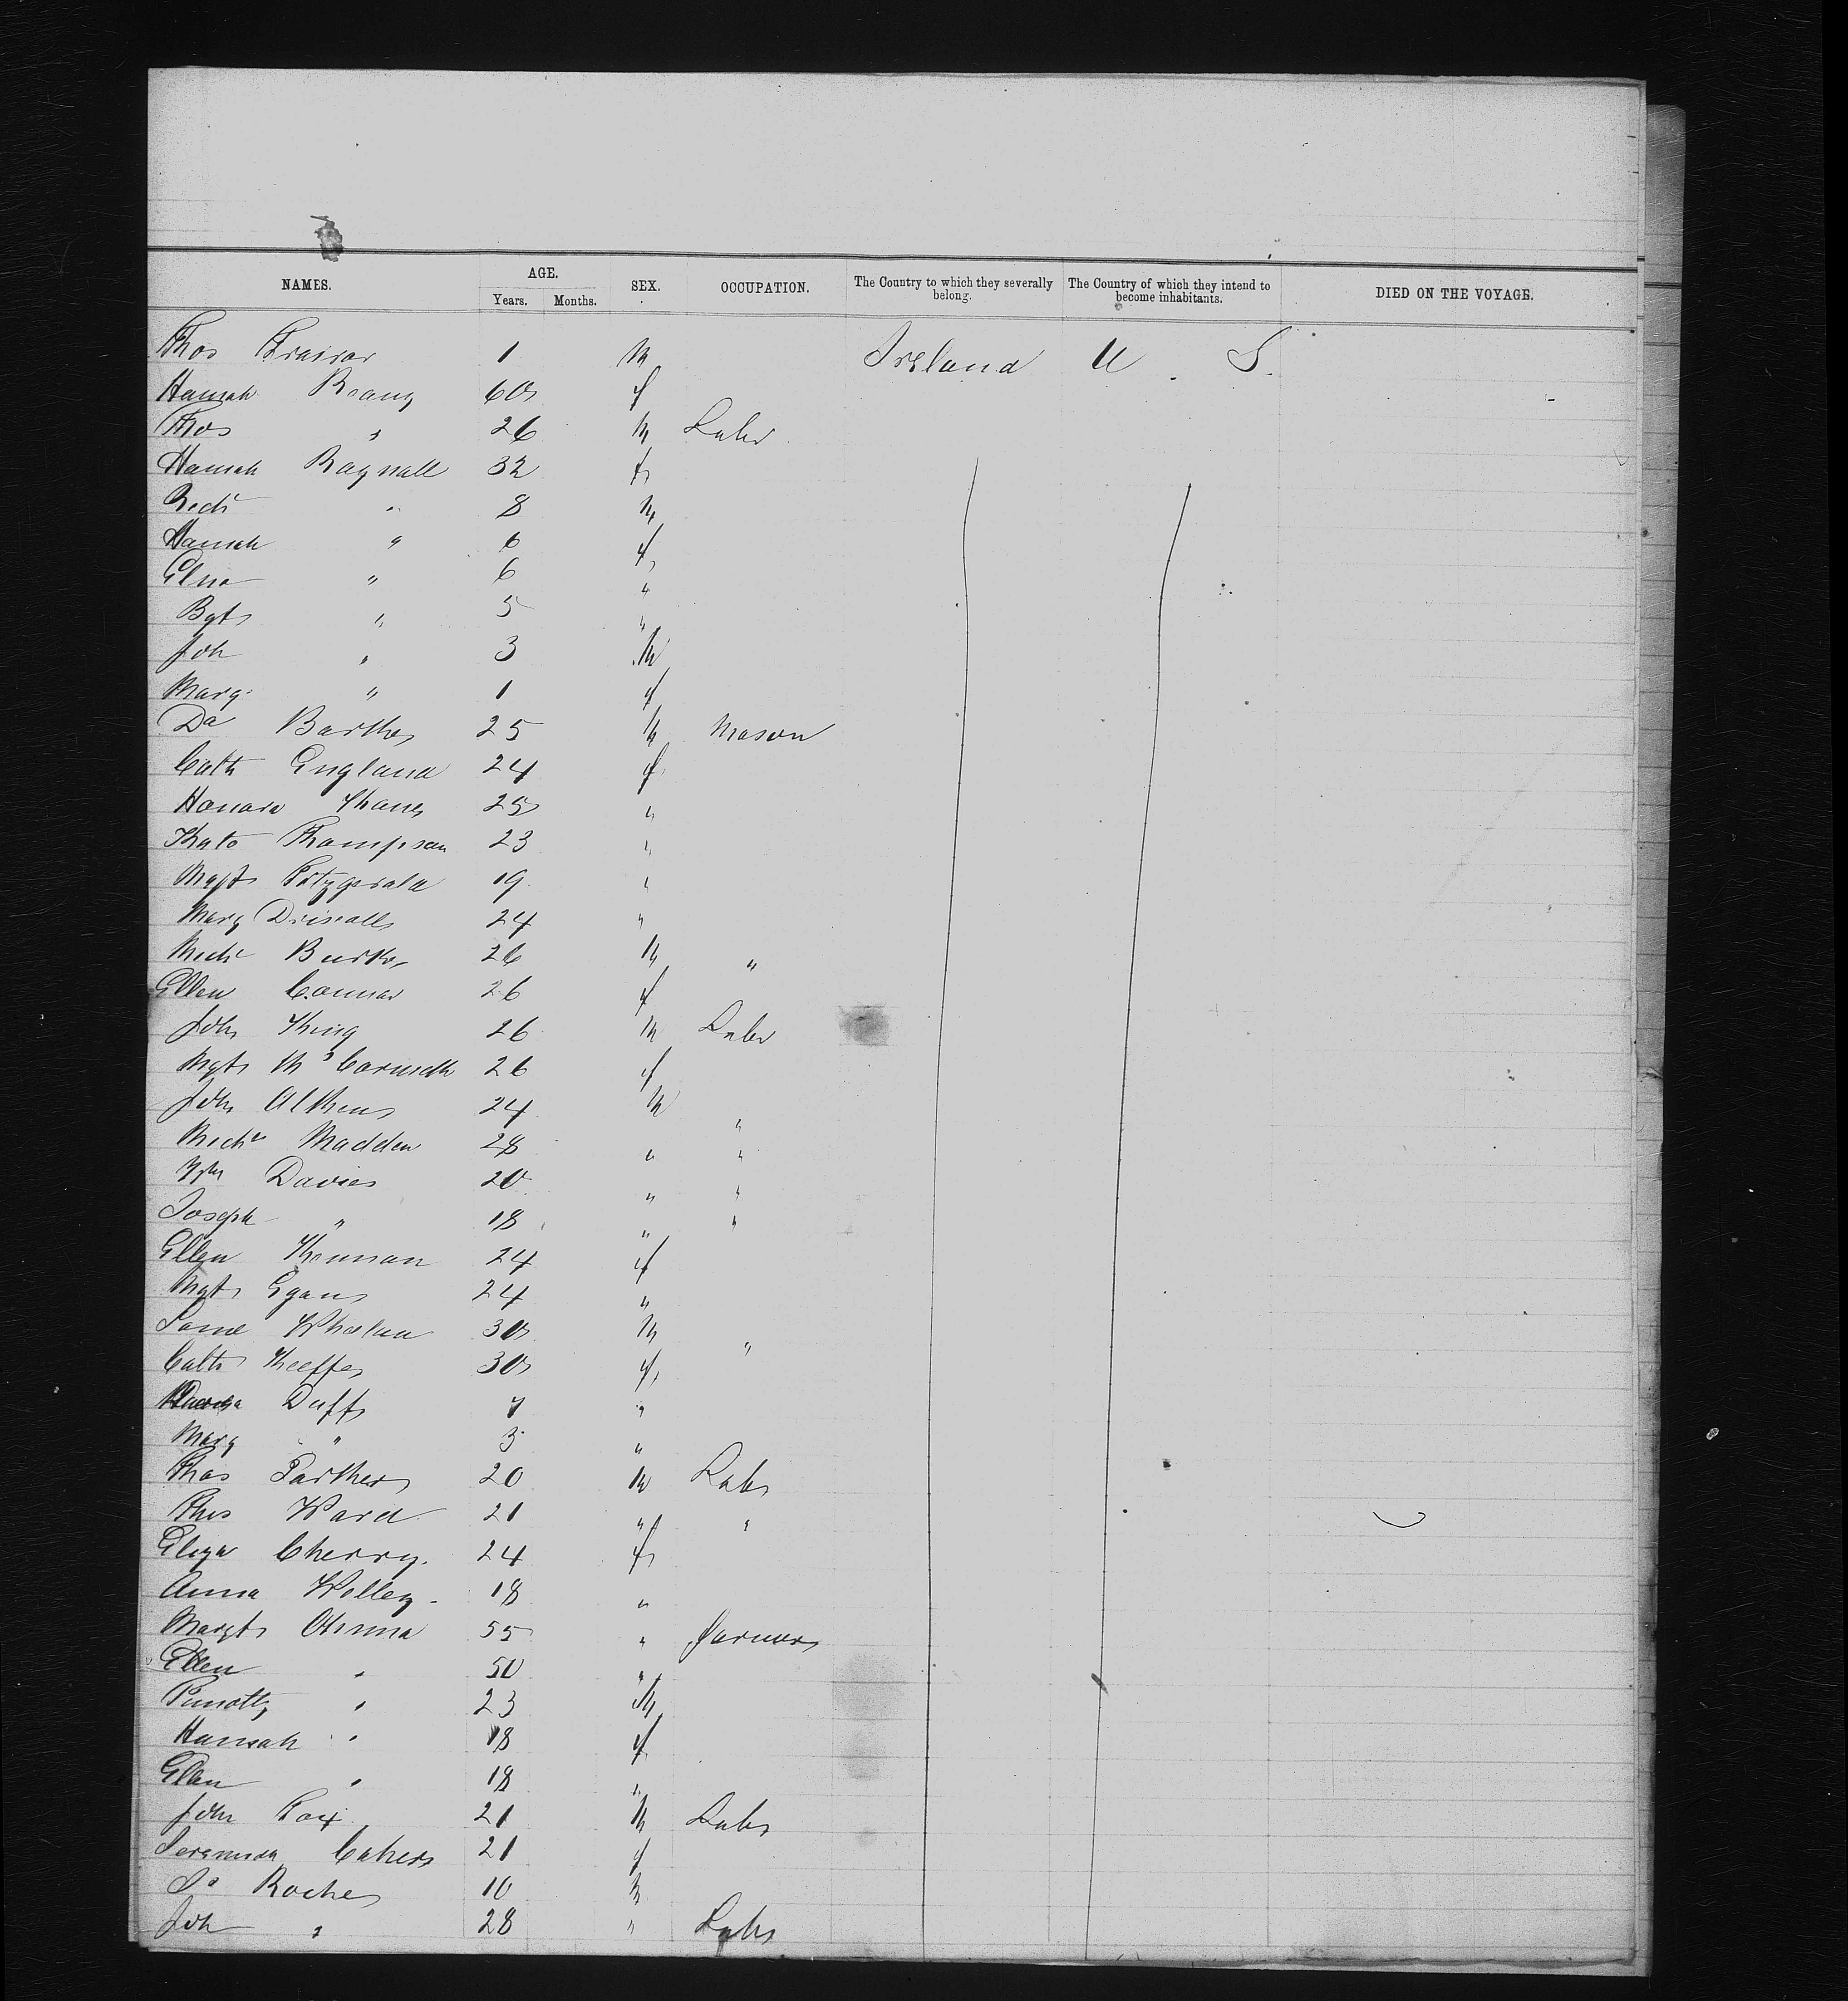 NAMES. AGE. Years. Months. SEX. OCCUPATION. The Country to which they severally belong. The Country of which they intend to become inhabitants. DIED ON THE VOYAGE.
Thos 1 M Ireland U. S.
Hannah 60 f
Thos " 26 M Labr
Hannah Bagnall 32 f
Richd " 8 M
Hannah " 6 f
Elna " 6 "
Bgt " 5 "
Joh " 3 M
Marg. " 1 f
Da Barthe 25 M Mason
Cath England 24 f
Honora 25 "
Kate Thompson 23 "
Mgt Fitzgerald 19 "
Mary Driscoll 24 "
Michl Burke 26 M "
Ellen Connor 26 f
John King 26 M Labr
Mgt McCormack 26 f
John Aikens 24 M "
Michl Madden 28 " "
Wm Davies 20 " "
Joseph " 18 " "
Ellen Kennan 24 f
Mgt Egan 24 "
Whelan 30 M "
Cath Keeffe 30 f
Duff 7 "
Mary " 3 "
Thos Parther 20 M Labr
Thos Ward 21 " "
Eliza Cherry. 24 f
Anna Willey 18 "
Margt 55 " farmer
Ellen " 50 "
" 23 M
Hannah " 18 f
Ellen " 18 "
John Fox 21 M Labr
Cahers 21 f
Roche 10 M
Joh " 28 " Labr